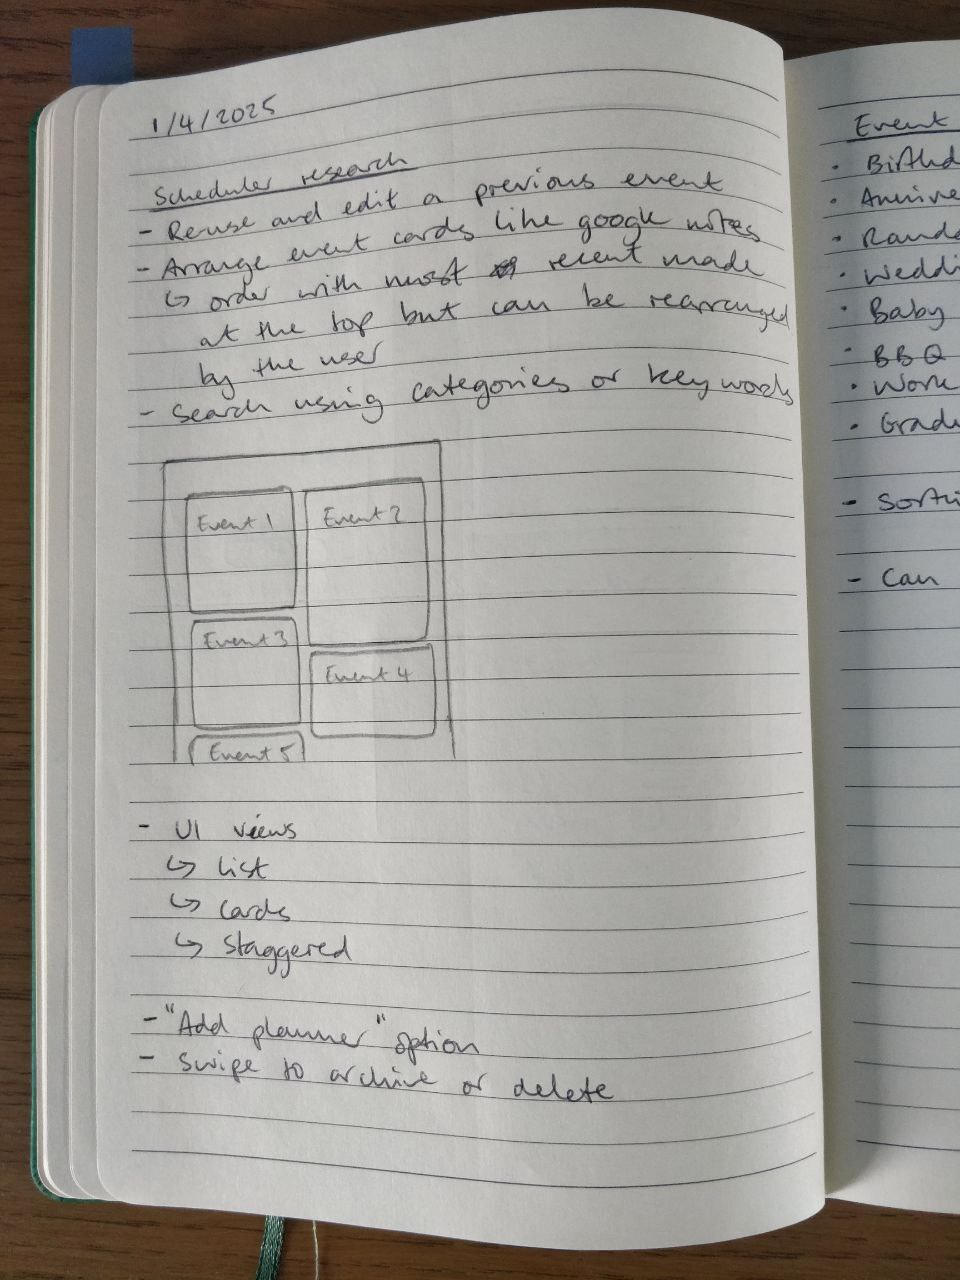 1/4/2025
Scheduler research
- Reuse and edit a previous event
- Arrange event cards like google notes
↳ order with most recent made
at the top but can be rearranged
by the user
- Search using categories or key words
Event 1
Event 2
Event 3
Event 4
Event 5
- UI views
↳ List
↳ Cards
↳ Staggered
- "Add planner" option
- Swipe to archive or delete
Event
• Birthd
• Annive
• Rando
• Weddi
• Baby
• BBQ
• Work
• Gradu
- Sorti
- Can